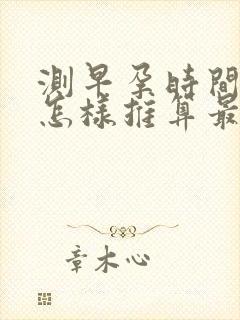 測早孕時間
怎樣推算最
章木心